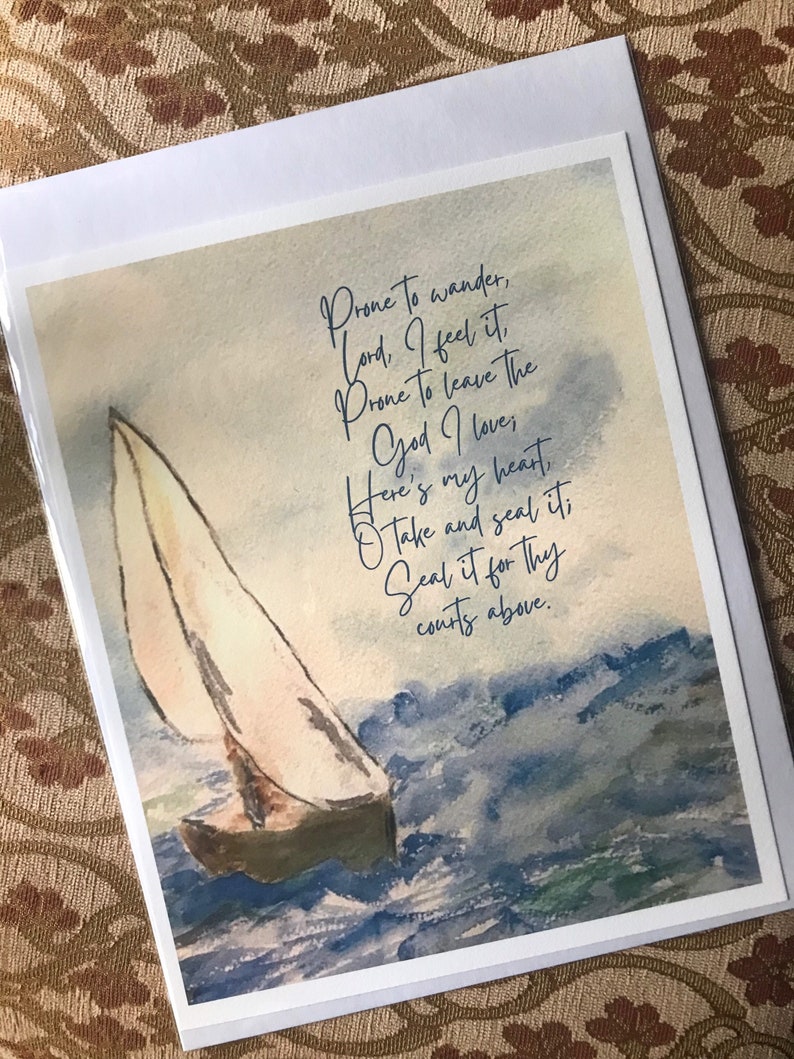 Prone to wander,
Lord, I feel it,
Prone to leave the
God I love;
Here's my heart,
O take and seal it;
Seal it for thy
courts above.